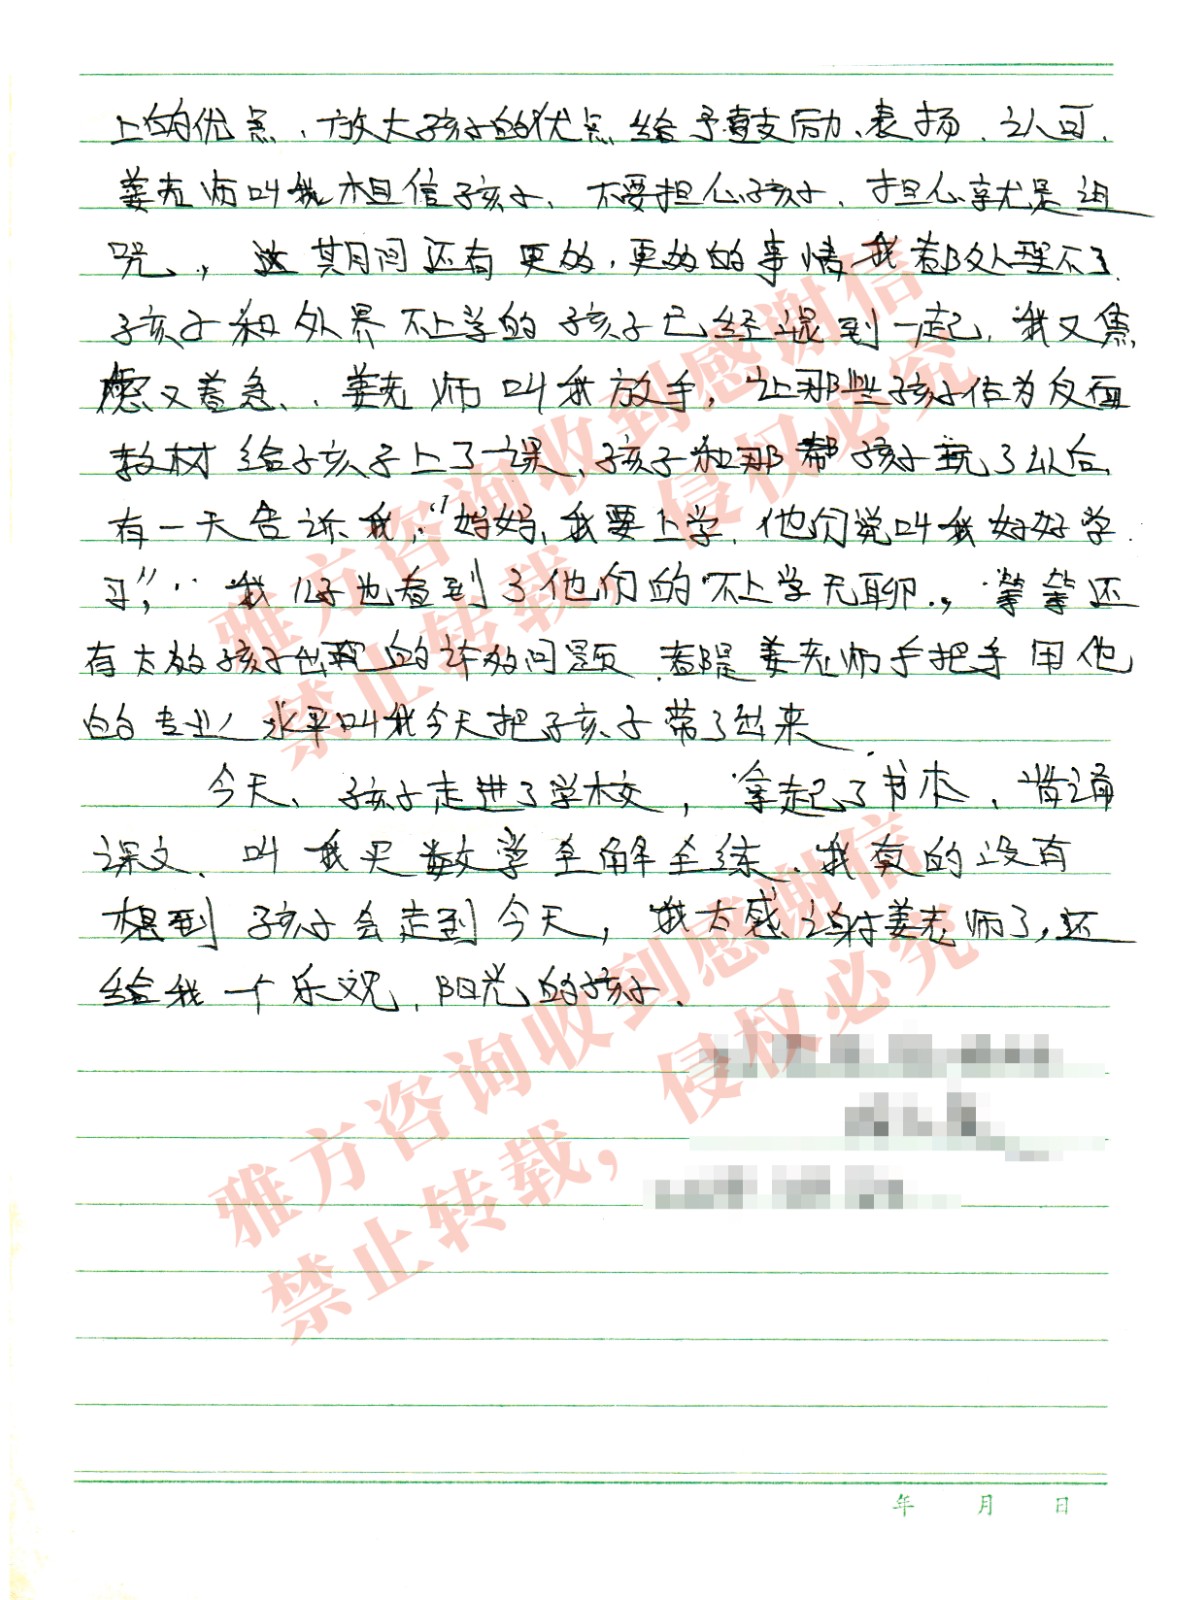 上的优点、放大孩子的优点给予鼓励、表扬、认可、
姜老师叫我相信孩子、不要担心孩子、担心就是诅
咒、，这期间还有更多，更多的事情我都处理不了
孩子和外界不上学的孩子已经混到一起，我又焦
虑又着急、、姜老师叫我放手，让那些孩子作为反面
教材给孩子上了一课、孩子和那帮孩子玩了以后
有一天告诉我：“妈妈，我要上学，他们说叫我好好学
习”，我儿子也看到了他们的不上学无聊.，等等还
有太多孩子出现的许多问题、都是姜老师手把手用他
的专业水平叫我今天把孩子带了出来
今天、孩子走进了学校，拿起了书本、背诵
课文、叫我买数学全解全练、我真的没有
想到孩子会走到今天，我太感谢姜老师了，还
给我一个乐观、阳光的孩子.
雅方咨询收到感谢信
禁止转载，侵权必究
雅方咨询收到感谢信
禁止转载，侵权必究
年 月 日